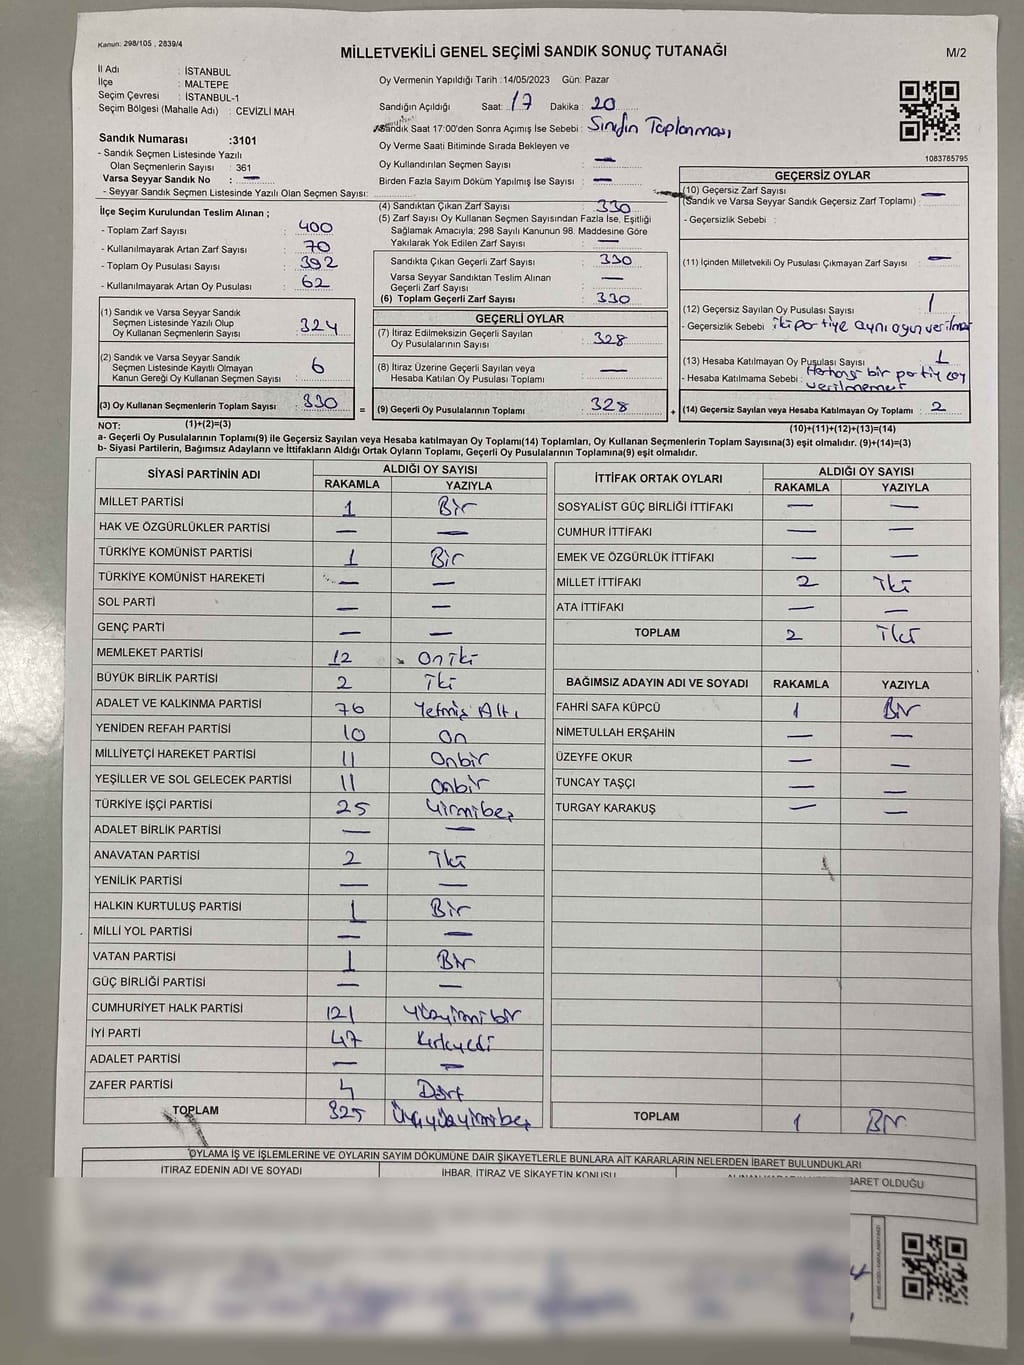 Kanun: 298/105 , 2839/4
MİLLETVEKİLİ GENEL SEÇİMİ SANDIK SONUÇ TUTANAĞI
M/2
İl Adı : İSTANBUL
İlçe : MALTEPE
Seçim Çevresi : İSTANBUL-1
Seçim Bölgesi (Mahalle Adı) : CEVİZLİ MAH
Oy Vermenin Yapıldığı Tarih :14/05/2023 Gün: Pazar
Sandığın Açıldığı Saat: 17 Dakika : 20
Sandık Saat 17:00'den Sonra Açımış İse Sebebi : Sınıfın Toplanması
Oy Verme Saati Bitiminde Sırada Bekleyen ve
Oy Kullandırılan Seçmen Sayısı : —
Birden Fazla Sayım Döküm Yapılmış İse Sayısı : —
1083785795
Sandık Numarası :3101
- Sandık Seçmen Listesinde Yazılı
Olan Seçmenlerin Sayısı : 361
Varsa Seyyar Sandık No : —
- Seyyar Sandık Seçmen Listesinde Yazılı Olan Seçmen Sayısı:
İlçe Seçim Kurulundan Teslim Alınan ;
- Toplam Zarf Sayısı : 400
- Kullanılmayarak Artan Zarf Sayısı : 70
- Toplam Oy Pusulası Sayısı : 392
- Kullanılmayarak Artan Oy Pusulası : 62
(1) Sandık ve Varsa Seyyar Sandık
Seçmen Listesinde Yazılı Olup
Oy Kullanan Seçmenlerin Sayısı : 324
(2) Sandık ve Varsa Seyyar Sandık
Seçmen Listesinde Kayıtlı Olmayan
Kanun Gereği Oy Kullanan Seçmen Sayısı : 6
(3) Oy Kullanan Seçmenlerin Toplam Sayısı : 330
(1)+(2)=(3)
(4) Sandıktan Çıkan Zarf Sayısı : 330
(5) Zarf Sayısı Oy Kullanan Seçmen Sayısından Fazla İse, Eşitliği
Sağlamak Amacıyla; 298 Sayılı Kanunun 98. Maddesine Göre
Yakılarak Yok Edilen Zarf Sayısı : —
Sandıkta Çıkan Geçerli Zarf Sayısı : 330
Varsa Seyyar Sandıktan Teslim Alınan
Geçerli Zarf Sayısı : —
(6) Toplam Geçerli Zarf Sayısı : 330
GEÇERLİ OYLAR
(7) İtiraz Edilmeksizin Geçerli Sayılan
Oy Pusulalarının Sayısı : 328
(8) İtiraz Üzerine Geçerli Sayılan veya
Hesaba Katılan Oy Pusulası Toplamı : —
= (9) Geçerli Oy Pusulalarının Toplamı : 328
GEÇERSİZ OYLAR
(10) Geçersiz Zarf Sayısı
(Sandık ve Varsa Seyyar Sandık Geçersiz Zarf Toplamı) : —
- Geçersizlik Sebebi :
(11) İçinden Milletvekili Oy Pusulası Çıkmayan Zarf Sayısı : —
(12) Geçersiz Sayılan Oy Pusulası Sayısı : 1
- Geçersizlik Sebebi : iki partiye aynı oyun verilmesi
(13) Hesaba Katılmayan Oy Pusulası Sayısı : 1
- Hesaba Katılmama Sebebi : Herhangi bir partiye oy
verilmemesi
+ (14) Geçersiz Sayılan veya Hesaba Katılmayan Oy Toplamı : 2
(10)+(11)+(12)+(13)=(14)
NOT:
a- Geçerli Oy Pusulalarının Toplamı(9) ile Geçersiz Sayılan veya Hesaba katılmayan Oy Toplamı(14) Toplamları, Oy Kullanan Seçmenlerin Toplam Sayısına(3) eşit olmalıdır. (9)+(14)=(3)
b- Siyasi Partilerin, Bağımsız Adayların ve İttifakların Aldığı Ortak Oyların Toplamı, Geçerli Oy Pusulalarının Toplamına(9) eşit olmalıdır.
SİYASİ PARTİNİN ADI ALDIĞI OY SAYISI
RAKAMLA YAZIYLA
MİLLET PARTİSİ 1 Bir
HAK VE ÖZGÜRLÜKLER PARTİSİ — —
TÜRKİYE KOMÜNİST PARTİSİ 1 Bir
TÜRKİYE KOMÜNİST HAREKETİ — —
SOL PARTİ — —
GENÇ PARTİ — —
MEMLEKET PARTİSİ 12 On iki
BÜYÜK BİRLİK PARTİSİ 2 İki
ADALET VE KALKINMA PARTİSİ 76 Yetmiş Altı
YENİDEN REFAH PARTİSİ 10 On
MİLLİYETÇİ HAREKET PARTİSİ 11 Onbir
YEŞİLLER VE SOL GELECEK PARTİSİ 11 Onbir
TÜRKİYE İŞÇİ PARTİSİ 25 Yirmibeş
ADALET BİRLİK PARTİSİ — —
ANAVATAN PARTİSİ 2 İki
YENİLİK PARTİSİ — —
HALKIN KURTULUŞ PARTİSİ 1 Bir
MİLLİ YOL PARTİSİ — —
VATAN PARTİSİ 1 Bir
GÜÇ BİRLİĞİ PARTİSİ — —
CUMHURİYET HALK PARTİSİ 121 Yüzyirmi bir
İYİ PARTİ 47 Kırkyedi
ADALET PARTİSİ — —
ZAFER PARTİSİ 4 Dört
TOPLAM 325 Üçyüzyirmibeş
İTTİFAK ORTAK OYLARI ALDIĞI OY SAYISI
RAKAMLA YAZIYLA
SOSYALİST GÜÇ BİRLİĞİ İTTİFAKI — —
CUMHUR İTTİFAKI — —
EMEK VE ÖZGÜRLÜK İTTİFAKI — —
MİLLET İTTİFAKI 2 İki
ATA İTTİFAKI — —
TOPLAM 2 İki
BAĞIMSIZ ADAYIN ADI VE SOYADI RAKAMLA YAZIYLA
FAHRİ SAFA KÜPCÜ 1 Bir
NİMETULLAH ERŞAHİN — —
ÜZEYFE OKUR — —
TUNCAY TAŞÇI — —
TURGAY KARAKUŞ — —
TOPLAM 1 Bir
OYLAMA İŞ VE İŞLEMLERİNE VE OYLARIN SAYIM DÖKÜMÜNE DAİR ŞİKAYETLERLE BUNLARA AİT KARARLARIN NELERDEN İBARET BULUNDUKLARI
İTİRAZ EDENİN ADI VE SOYADI İHBAR, İTİRAZ VE ŞİKAYETİN KONUSU